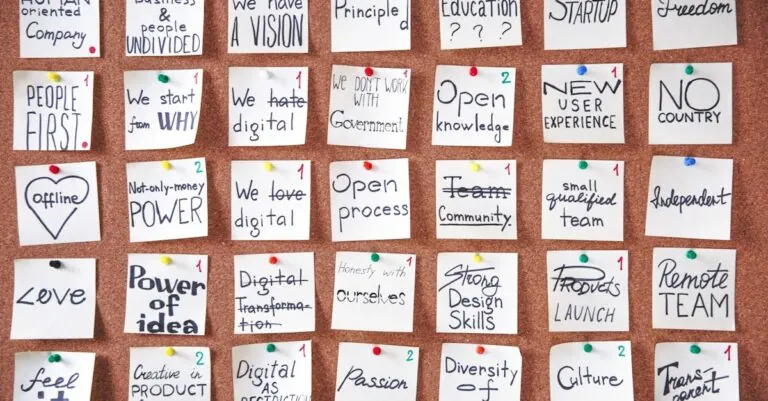 oriented
Company
Business
&
people
UNDIVIDED
We have
A VISION
Principled
Education
? ? ?
STARTUP
Freedom
PEOPLE
FIRST
1
We start
from WHY
1
We hate
digital
1
We DON'T WORK
WITH
Government
1
Open
knowledge
2
NEW
USER
EXPERIENCE
1
NO
COUNTRY
offline
Not-only-money
POWER
2
We love
digital
1
Open
process
Team
Community
1
small
qualified
team
1
Independent
Love
Power
of
idea
1
Digital
Transforma-
tion
1
Honesty with
ourselves
1
Strong
Design
Skills
Products
LAUNCH
1
Remote
TEAM
feel
it
Creative in
PRODUCT
2
Digital
AS
1
Passion
2
Diversity
of
Culture
2
Trans-
parent
1